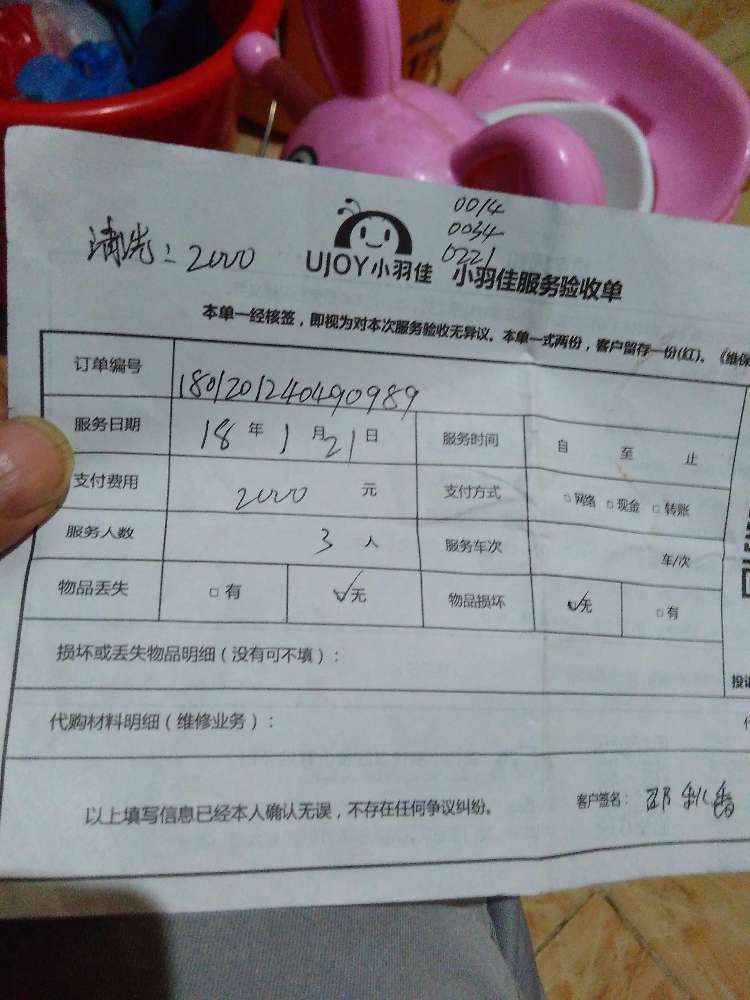 0014
0034
0221
清洗：2000
UJOY小羽佳 小羽佳服务验收单
本单一经核签，即视为对本次服务验收无异议。本单一式两份，客户留存一份(红)。《维保
订单编号 180120124040989
服务日期 18年1月21日 服务时间 自 至 止
支付费用 2000 元 支付方式 □网络 □现金 □转账
服务人数 3人 服务车次 车/次
物品丢失 □有 ✓无 物品损坏 ✓无 □有
损坏或丢失物品明细（没有可不填）：
投诉
代购材料明细（维修业务）：
以上填写信息已经本人确认无误，不存在任何争议纠纷。 客户签名：